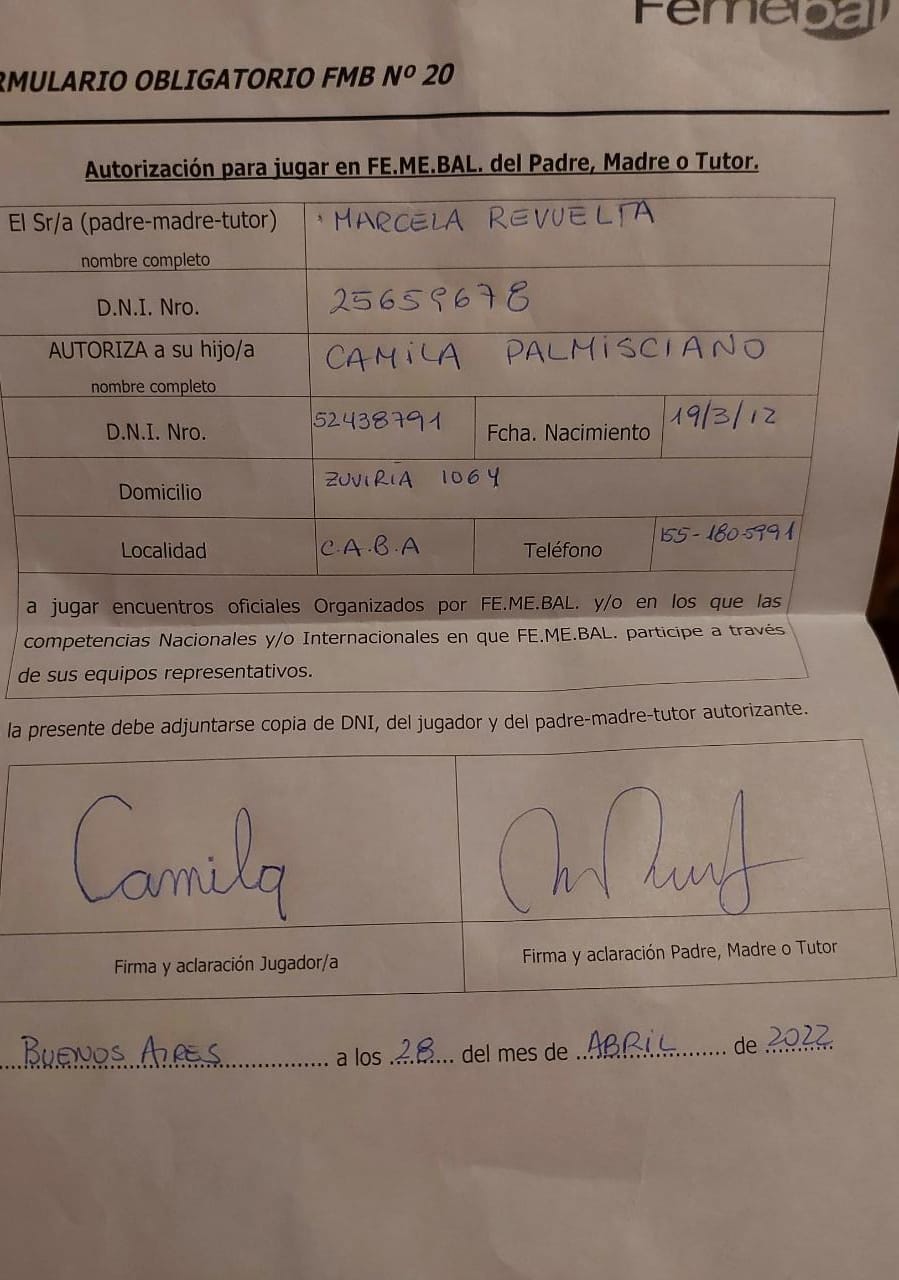 Femebal
RMULARIO OBLIGATORIO FMB Nº 20
Autorización para jugar en FE.ME.BAL. del Padre, Madre o Tutor.
El Sr/a (padre-madre-tutor) MARCELA REVUELTA
nombre completo
D.N.I. Nro. 25659678
AUTORIZA a su hijo/a CAMILA PALMISCIANO
nombre completo
D.N.I. Nro. 52438791 Fcha. Nacimiento 19/3/12
Domicilio ZUVIRIA 1064
Localidad C.A.B.A Teléfono 155-1805991
a jugar encuentros oficiales Organizados por FE.ME.BAL. y/o en los que las
competencias Nacionales y/o Internacionales en que FE.ME.BAL. participe a través
de sus equipos representativos.
la presente debe adjuntarse copia de DNI, del jugador y del padre-madre-tutor autorizante.
Camila
Firma y aclaración Jugador/a Firma y aclaración Padre, Madre o Tutor
BUENOS AIRES a los 28 del mes de ABRIL de 2022